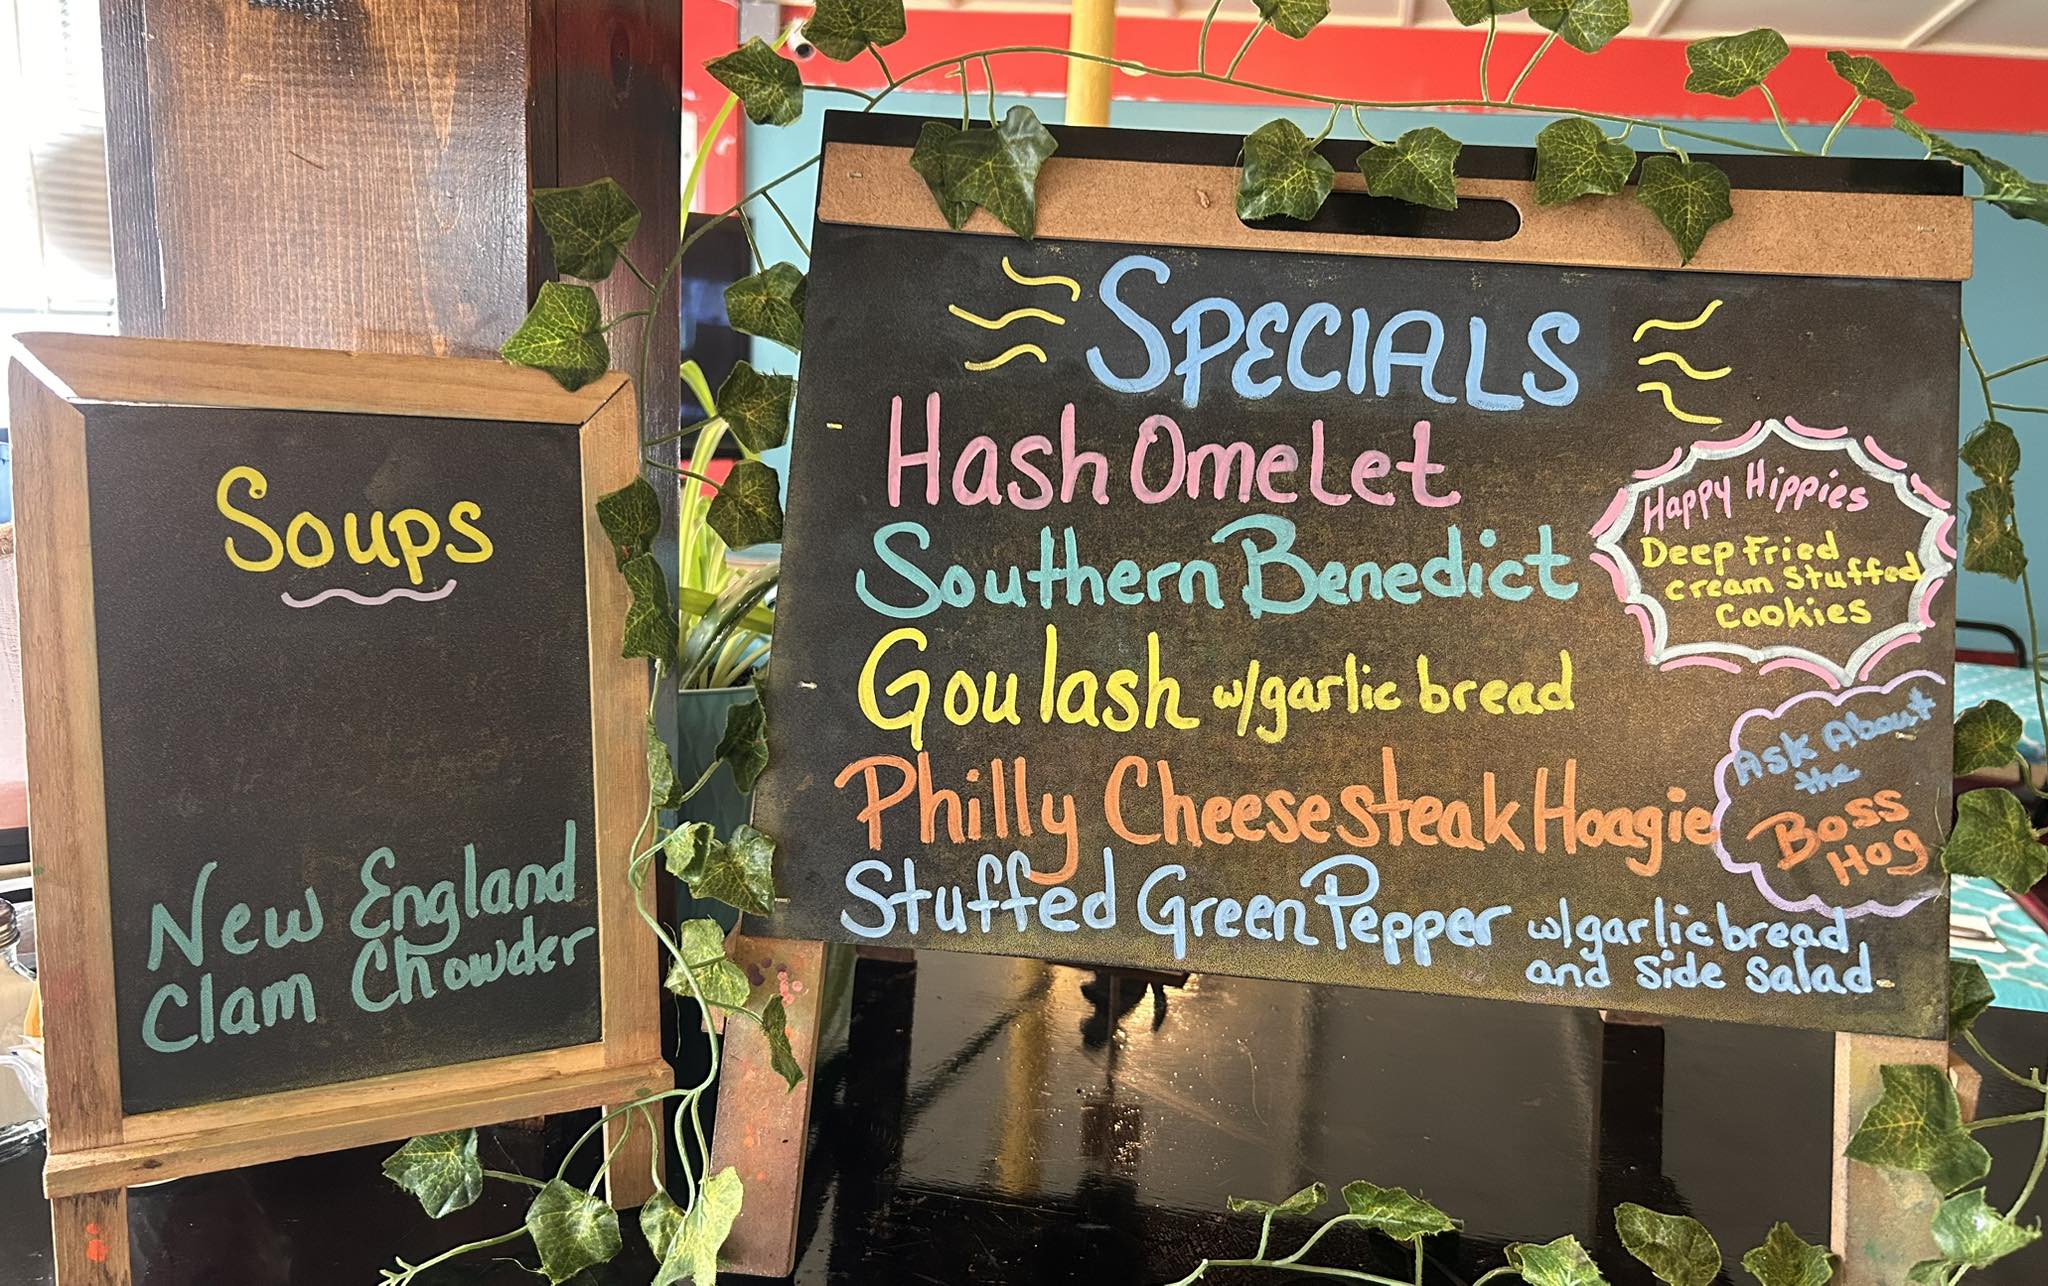 Soups
New England
Clam Chowder
SPECIALS
Hash Omelet
Southern Benedict
Goulash w/garlic bread
Philly Cheesesteak Hoagie
Stuffed Green Pepper w/garlic bread
and side salad
Happy Hippies
Deep Fried
cream stuffed
Cookies
Ask About
the
Boss
Hog